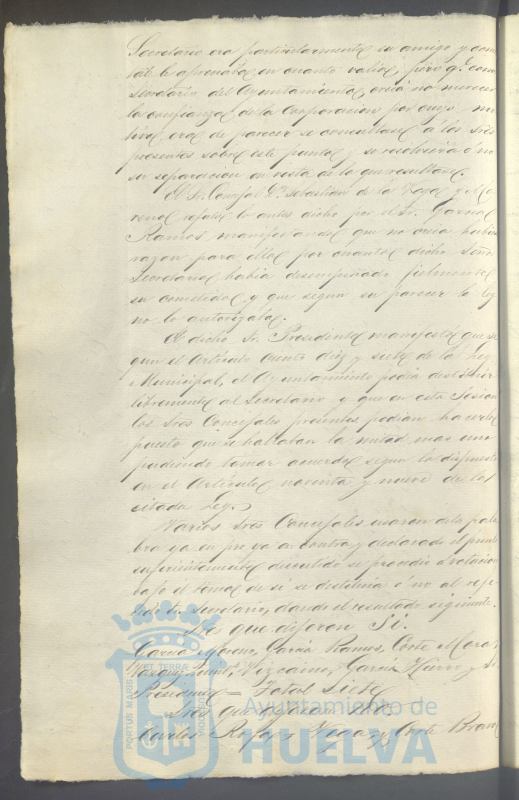 Secretario era particularmente su amigo y como
tál le apreciaba en cuanto valia, pero qe. como
Secretario del Ayuntamiento, creia no merecer
la confianza de la Corporacion por cuyo mo-
tivo, era de parecer se consultase á los Sres
presentes sobre este punto y se resolviera ó no
su separacion en vista de lo que resultase.
El Sr. Concejal Dn. Sebastian de la Vega y Mo-
reno refutó lo antes dicho por el Sr. Garcia
Ramos, manifestando que no creia habia
razon para ello, por cuanto dicho Señor
Secretario, habia desempeñado fielmente
su cometido, y que segun su parecer la ley
no lo autorizaba.
El dicho Sr. Presidente manifestó que se-
gun el Artículo ciento diez y siete de la Ley
Municipal, el Ayuntamiento podia destituir
libremente al Secretario y que en esta Sesion
los Sres Concejales presentes podian hacerlo
puesto que se hallaban la mitad mas uno
pudiendo tomar acuerdo segun lo dispuesto
en el Articulo noventa y nueve de la
citada Ley.
Varios Sres Concejales usaron de la pala-
bra ya en pro ya en contra y declarado el punto
suficientemente discutido se procedió á votacion
bajo el tema de si se destituia ó no al refe-
rido Sr. Secretario, dando el resultado siguiente.
Sres que dijeron Si.
Garcia Moreno, Garcia Ramos, Corte Mora,
Vazquez, Vizcaino, Garcia Hierro y Sr.
Presidente = Total Siete
Sres que dijeron No.
Rafo, Vega, y Corte Bravo
PORTUS MARIS ET TERRAE CUSTODIA
Ayuntamiento de
HUELVA